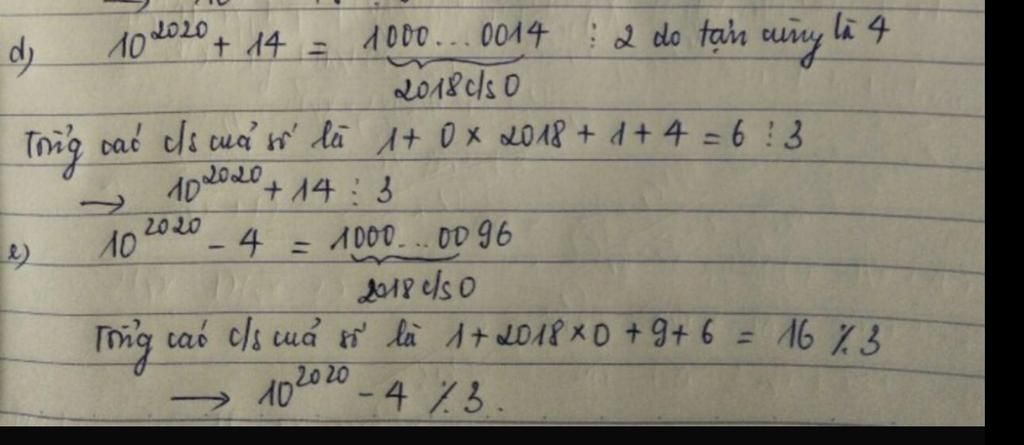 d) 10^2020 + 14 = 1000...0014 ⋮ 2 do tận cùng là 4
2018 c/s 0
Tổng các c/s của số là 1 + 0 × 2018 + 1 + 4 = 6 ⋮ 3
→ 10^2020 + 14 ⋮ 3
e) 10^2020 - 4 = 1000...0096
2018 c/s 0
Tổng các c/s của số là 1 + 2018 × 0 + 9 + 6 = 16 ⋮̸ 3
→ 10^2020 - 4 ⋮̸ 3.